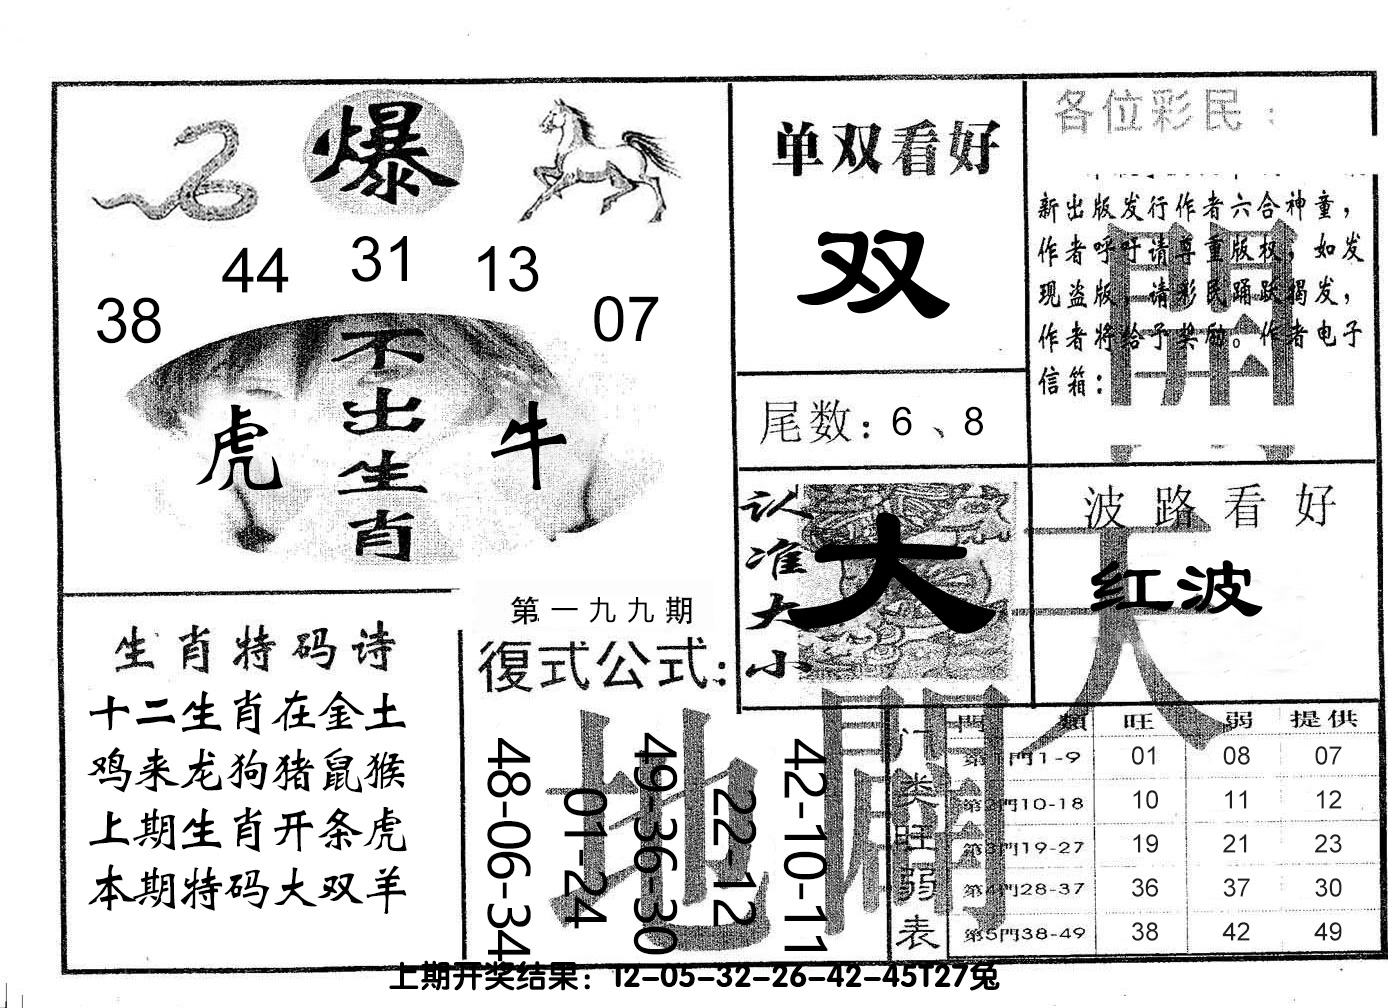 爆
38 44 31 13 07
不出生肖
虎 牛
生肖特码诗
十二生肖在金土
鸡来龙狗猪鼠猴
上期生肖开条虎
本期特码大双羊
第一九九期
復式公式:
48-06-34
01-24
49-36-30
22-12
42-10-11
单双看好
双
尾数:6、8
认准大小
大
各位彩民:
新出版发行作者六合神童,
作者呼吁请尊重版权,如发
现盗版,请彩民踊跃揭发,
作者将给予奖励。作者电子
信箱:
天
地
波路看好
红波
门类旺弱表
門類 旺 弱 提供
第1門1-9 01 08 07
第2門10-18 10 11 12
第3門19-27 19 21 23
第4門28-37 36 37 30
第5門38-49 38 42 49
上期开奖结果:12-05-32-26-42-45T27兔